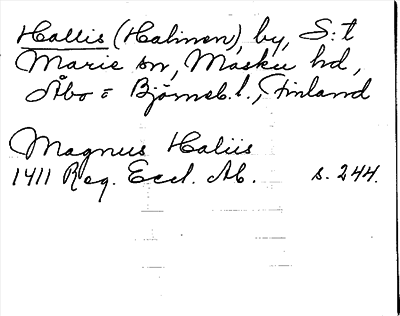 Hallis (Halinen), by, S:t
Marie sn, Masku hd,
Åbo = Björneb. l., Finland
Magnus Haliis
1411 Reg. Eccl. Ab. s. 244.